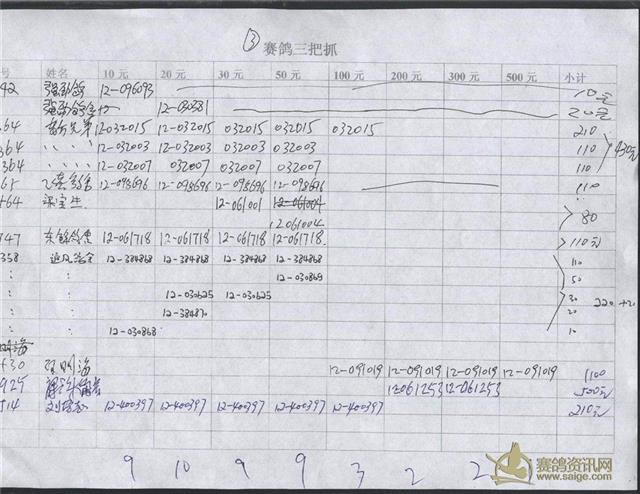 ③
赛鸽三把抓
号 姓名 10 元 20 元 30 元 50 元 100 元 200 元 300 元 500 元 小计
42 强劲鸽 12-096093 10元
强劲鸽舍 12-030381 20元
64 兄弟 12-032015 12-032015 032015 032015 032015 210
364 、、、、 12-032003 12-032003 032003 032003 110 430元
364 、、、、 12-032007 032007 032007 032007 110
12-098696 12-098696 12-098696 12-098696 110
+64 12-061001 12-061004
12061004 80
747 东锦鸽舍 12-061718 12-061718 12-061718 12-061718 110元
358 追风鸽舍 12-384868 12-384868 12-384868 12-384868 110
: : 12-030869 50
: : 12-030625 12-030625 30 220 +20
: : 12-384870 20
: : 12-030868 10
+30 明海 12-091019 12-091019 12-091019 12-091019 1100
925 12061253 12-061253 500元
+14 刘 12-400397 12-400397 12-400397 12-400397 12-400397 210元
9 10 9 9 3 2 2
赛鸽资讯网
www.saige.com